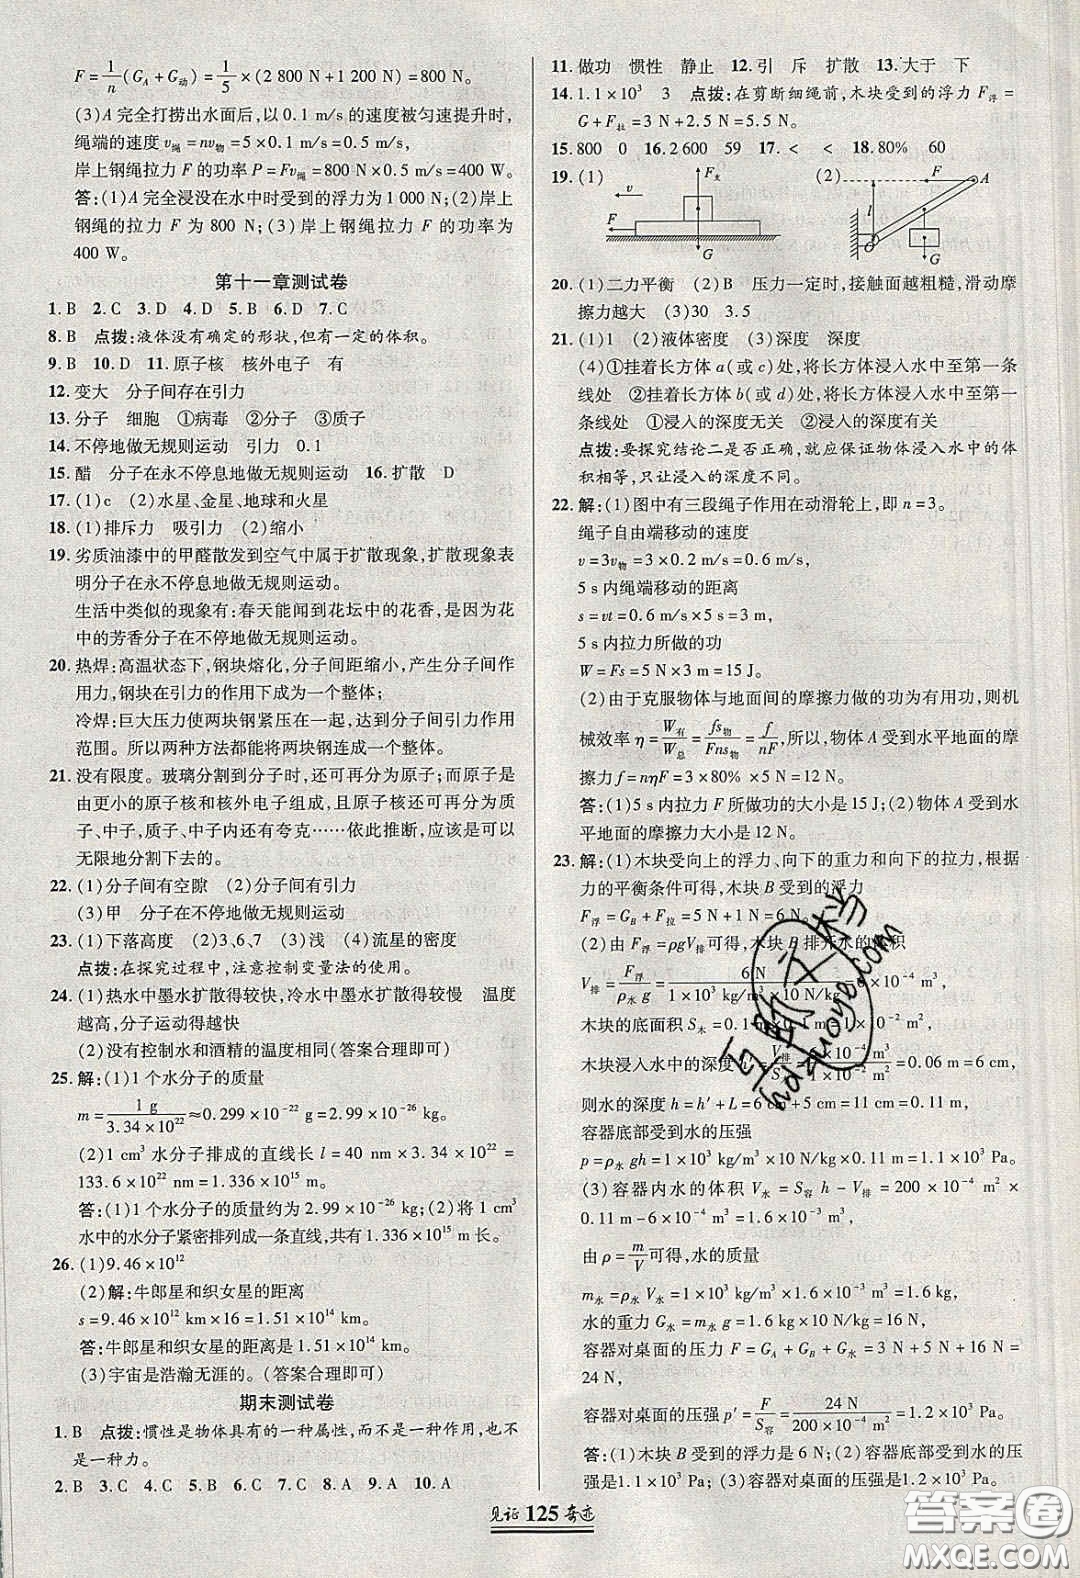 F=1/n(G_A+G_动)=1/5×(2 800 N+1 200 N)=800 N。
(3)A完全打捞出水面后,以0.1 m/s的速度被匀速提升时,
绳端的速度 v_绳=nv_物=5×0.1 m/s=0.5 m/s,
岸上钢绳拉力F的功率P=Fv_绳=800 N×0.5 m/s=400 W。
答:(1)A完全浸没在水中时受到的浮力为1 000 N;(2)岸上
钢绳的拉力F为800 N;(3)岸上钢绳拉力F的功率为
400 W。
第十一章测试卷
1. B 2. C 3. D 4. D 5. B 6. D 7. C
8. B 点拨:液体没有确定的形状,但有一定的体积。
9. B 10. D 11. 原子核 核外电子 有
12. 变大 分子间存在引力
13. 分子 细胞 ①病毒 ②分子 ③质子
14. 不停地做无规则运动 引力 0.1
15. 醋 分子在永不停息地做无规则运动 16. 扩散 D
17. (1)c (2)水星、金星、地球和火星
18. (1)排斥力 吸引力 (2)缩小
19. 劣质油漆中的甲醛散发到空气中属于扩散现象,扩散现象表
明分子在永不停息地做无规则运动。
生活中类似的现象有:春天能闻到花坛中的花香,是因为花
中的芳香分子在不停地做无规则运动。
20. 热焊:高温状态下,钢块熔化,分子间距缩小,产生分子间作
用力,钢块在引力的作用下成为一个整体;
冷焊:巨大压力使两块钢紧压在一起,达到分子间引力作用
范围。所以两种方法都能将两块钢连成一个整体。
21. 没有限度。玻璃分割到分子时,还可再分为原子;而原子是
由更小的原子核和核外电子组成,且原子核还可再分成质
子、中子,质子、中子内还有夸克……依此推断,应该是可以
无限地分割下去的。
22. (1)分子间有空隙 (2)分子间有引力
(3)甲 分子在不停地做无规则运动
23. (1)下落高度 (2)3、6、7 (3)浅 (4)流星的密度
点拨:在探究过程中,注意控制变量法的使用。
24. (1)热水中墨水扩散得较快,冷水中墨水扩散得较慢 温度
越高,分子运动得越快
(2)没有控制水和酒精的温度相同(答案合理即可)
25. 解:(1)1个水分子的质量
m=1 g/3.34×10^22≈0.299×10^-22 g=2.99×10^-26 kg。
(2)1 cm³ 水分子排成的直线长 l=40 nm×3.34×10^22=
133.6×10^22 nm=1.336×10^15 m。
答:(1)1个水分子的质量约为2.99×10^-26 kg;(2)将1 cm³
水中的水分子紧密排列成一条直线,共有1.336×10^15 m长。
26. (1)9.46×10^12
(2)解:牛郎星和织女星的距离
s=9.46×10^12 km×16=1.51×10^14 km。
答:牛郎星和织女星的距离是1.51×10^14 km。
(3)宇宙是浩瀚无涯的。(答案合理即可)
期末测试卷
1. B 点拨:惯性是物体具有的一种属性,而不是一种作用,也不
是一种力。
2. B 3. C 4. C 5. D 6. C 7. C 8. A 9. A 10. A
11. 做功 惯性 静止 12. 引 斥 扩散 13. 大于 下
14. 1.1×10³ 3 点拨:在剪断细绳前,木块受到的浮力F_浮=
G+F_拉=3 N+2.5 N=5.5 N。
15. 800 0 16. 2 600 59 17. < < 18. 80% 60
19. (1) v F F_支 G (2) F A l O G
20. (1)二力平衡 (2)B 压力一定时,接触面越粗糙,滑动摩
擦力越大 (3)30 3.5
21. (1)1 (2)液体密度 (3)深度 深度
(4)①挂着长方体a(或c)处,将长方体浸入水中至第一条
线处 ②挂着长方体b(或d)处,将长方体浸入水中至第一
条线处 ①浸入的深度无关 ②浸入的深度有关
点拨:要探究结论二是否正确,就应保证物体浸入水中的体
积相等,只让浸入的深度不同。
22. 解:(1)图中有三段绳子作用在动滑轮上,即n=3。
绳子自由端移动的速度
v=3v_物=3×0.2 m/s=0.6 m/s,
5 s内绳端移动的距离
s=vt=0.6 m/s×5 s=3 m,
5 s内拉力所做的功
W=Fs=5 N×3 m=15 J。
(2)由于克服物体与地面间的摩擦力做的功为有用功,则机
械效率η=W_有/W_总=fs_物/Fns_物=f/nF,所以,物体A受到水平地面的摩
擦力f=nηF=3×80%×5 N=12 N。
答:(1)5 s内拉力F所做功的大小是15 J;(2)物体A受到水
平地面的摩擦力大小是12 N。
23. 解:(1)木块受向上的浮力、向下的重力和向下的拉力,根据
力的平衡条件可得,木块B受到的浮力
F_浮=G_B+F_拉=5 N+1 N=6 N。
(2)由F_浮=ρgV_排可得,木块B排开水的体积
V_排=F_浮/ρ_水 g=6 N/1×10³ kg/m³×10 N/kg=6×10^-4 m³,
木块的底面积S_木=0.1 m×0.1 m=1×10^-2 m²,
木块浸入水中的深度h′=V_排/S_木=6×10^-4 m³/1×10^-2 m²=0.06 m=6 cm,
则水的深度h=h′+L=6 cm+5 cm=11 cm=0.11 m,
容器底部受到水的压强
p=ρ_水 gh=1×10³ kg/m³×10 N/kg×0.11 m=1.1×10³ Pa。
(3)容器内水的体积V_水=S_容 h-V_排=200×10^-4 m²×
0.11 m-6×10^-4 m³=1.6×10^-3 m³,
由ρ=m/V可得,水的质量
m_水=ρ_水 V_水=1×10³ kg/m³×1.6×10^-3 m³=1.6 kg,
水的重力G_水=m_水 g=1.6 kg×10 N/kg=16 N,
容器对桌面的压力F=G_A+G_B+G_水=3 N+5 N+16 N=
24 N,
容器对桌面的压强p′=F/S_容=24 N/200×10^-4 m²=1.2×10³ Pa。
答:(1)木块B受到的浮力是6 N;(2)容器底部受到水的压
强是1.1×10³ Pa;(3)容器对桌面的压强是1.2×10³ Pa。
见证 125 奇迹
百助文档
hdzuoye.com
答案圈
MXQE.COM